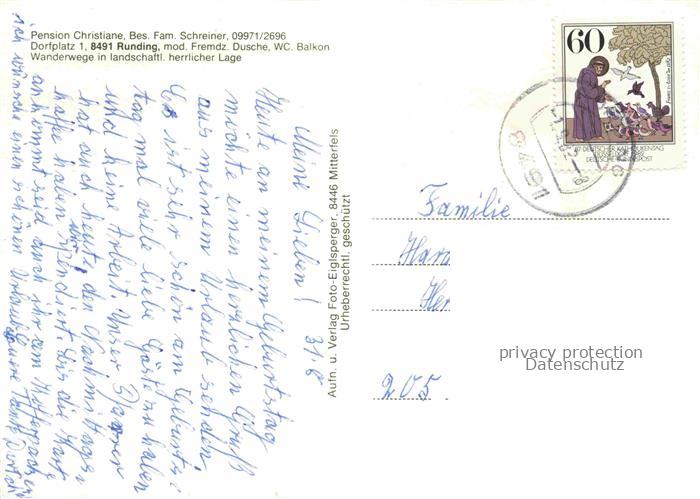 Pension Christiane, Bes. Fam. Schreiner, 09971/2696
Dorfplatz 1, 8491 Runding, mod. Fremdz. Dusche, WC. Balkon
Wanderwege in landschaftl. herrlicher Lage
Meine Lieben! 31.8
Heute an meinem Geburtstag
möchte einen herzlichen Gruß
aus meinem Urlaub senden.
Es ist sehr schön am Geburts-
tag mal viele liebe Gäste zu haben
und keine Arbeit. Unser
hat auch heute den Nachmittags
kaffe haben spendiert. bis die Karte
ankommt seid auch ihr am
ich wünsche einen schönen Urlaub
Aufn. u. Verlag Foto-Eiglsperger, 8446 Mitterfels
Urheberrechtl. geschützt
60
DEUTSCHER KATHOLIKENTAG
DEUTSCHE BUNDESPOST
8491
Familie
205
privacy protection
Datenschutz